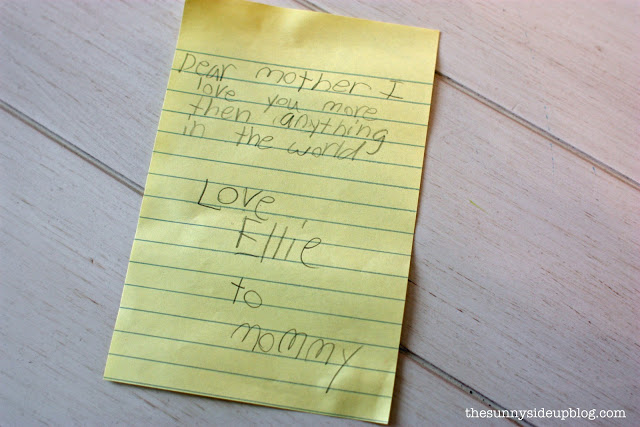 Dear mother I
love you more
then anything
in the world
Love,
Ellie
to
mommy
thesunnysideupblog.com